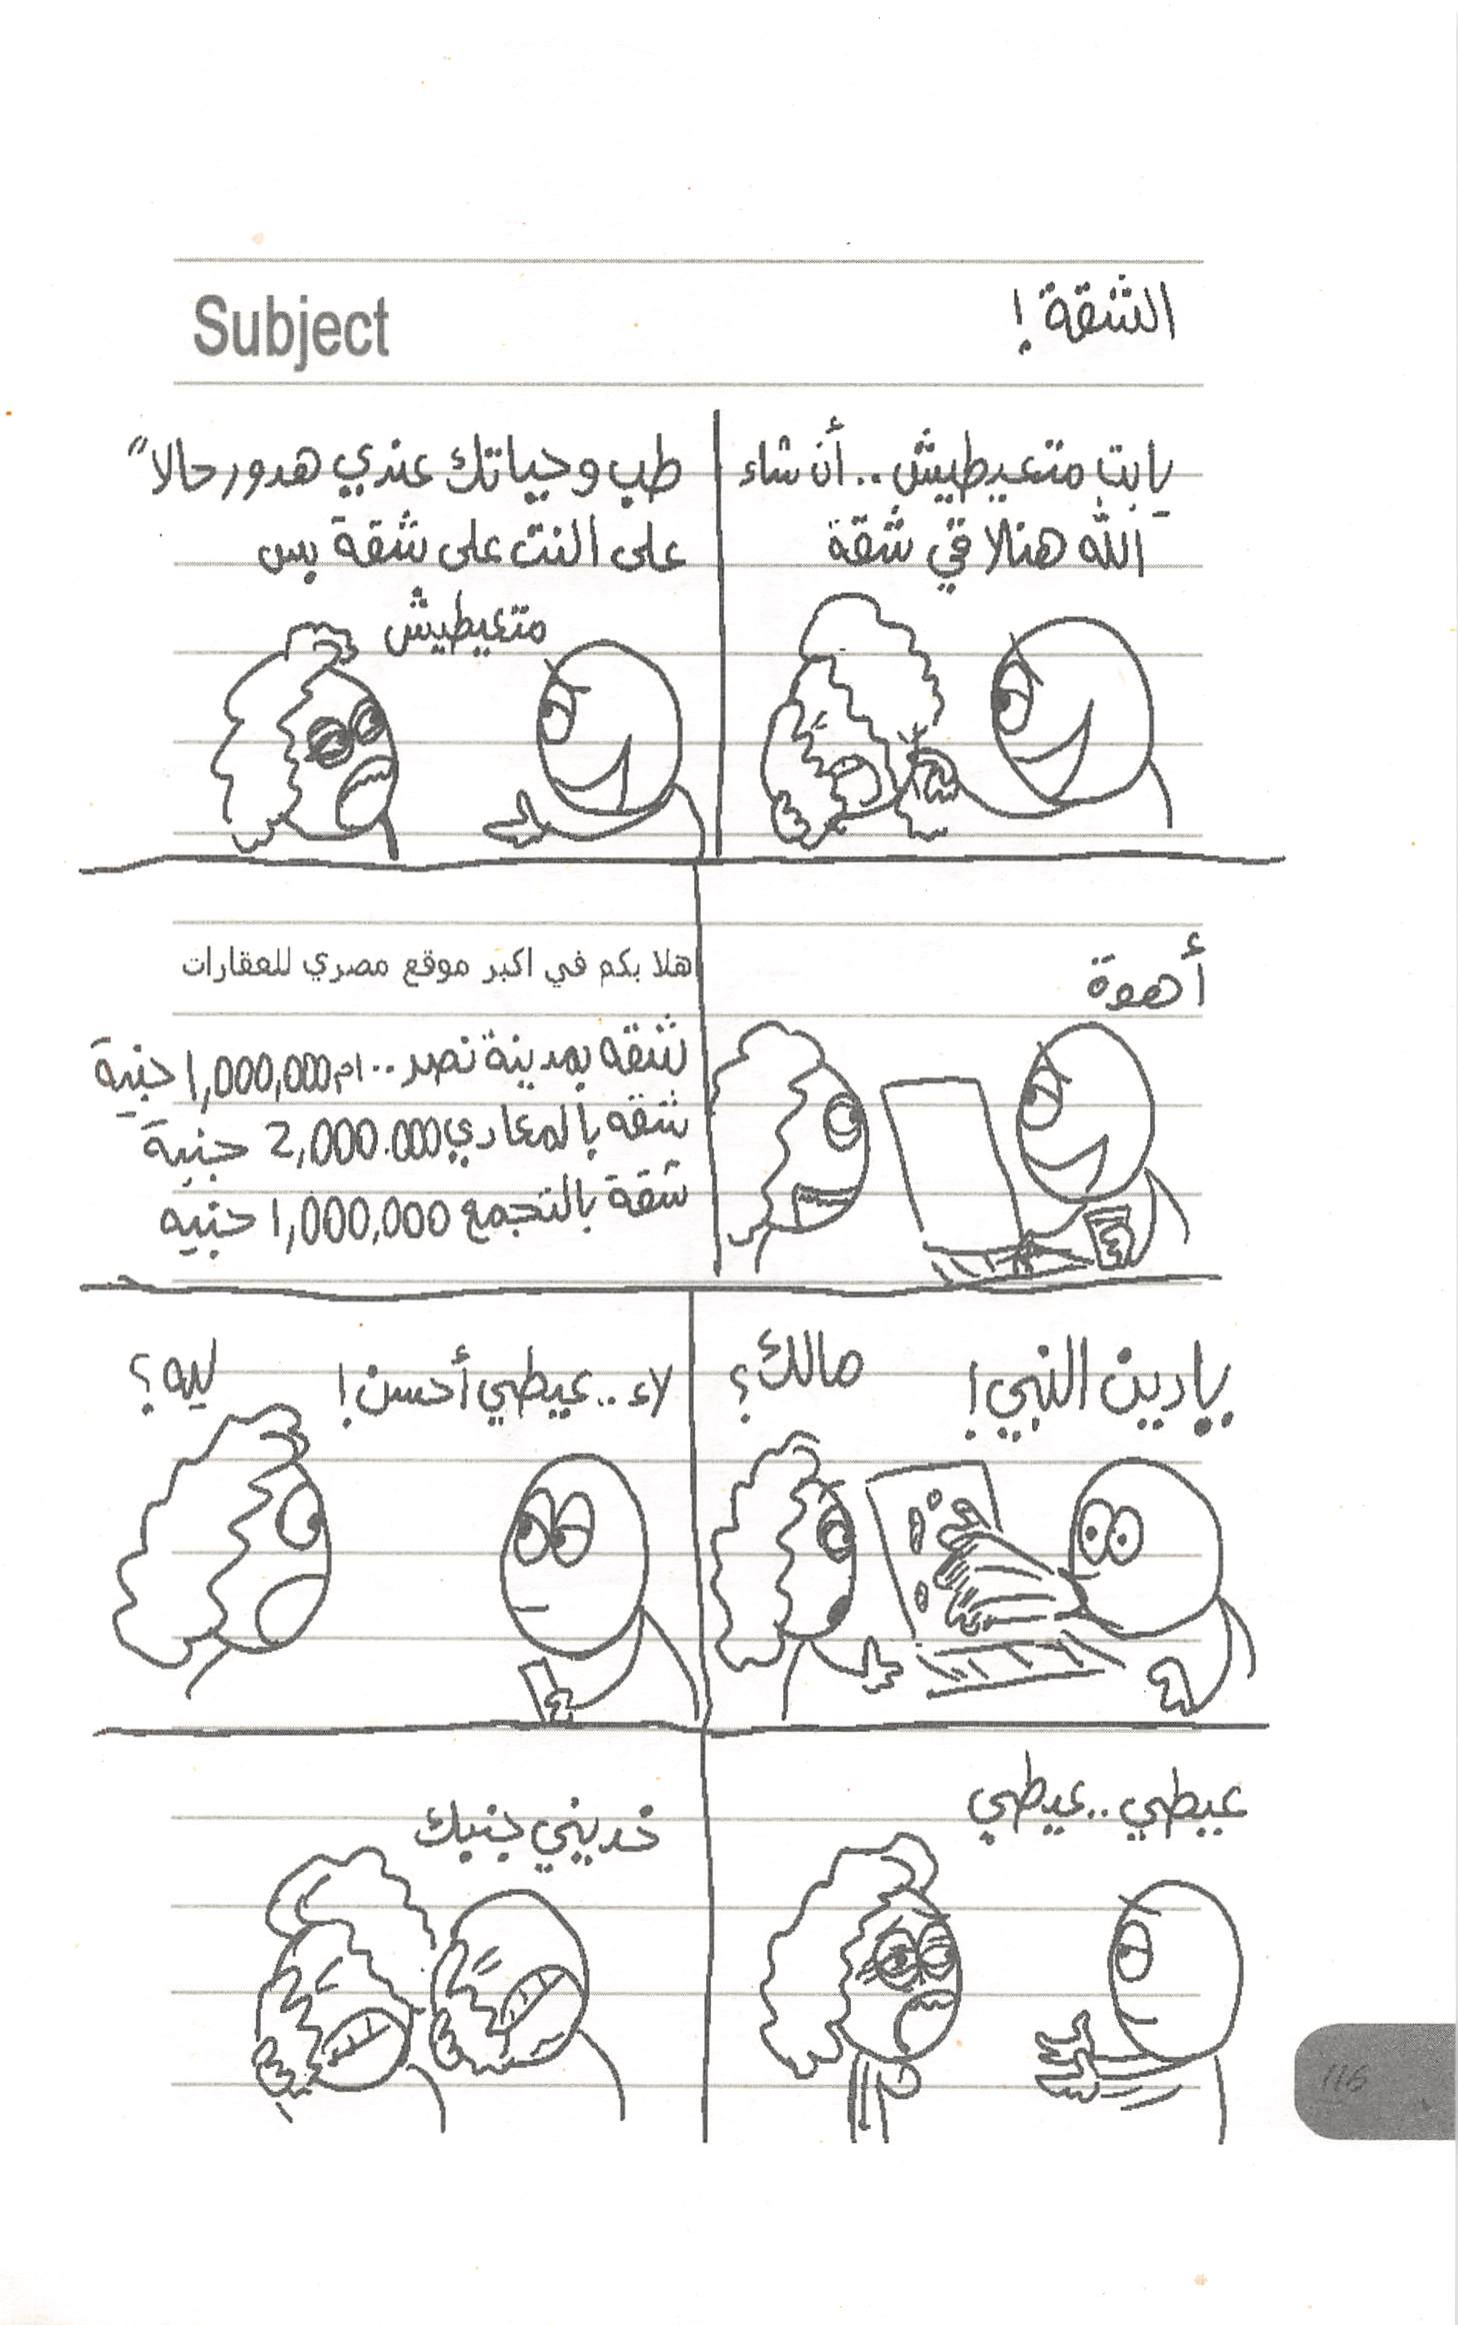 Subject
الشقة !
يابت متعيطيش .. أن شاء
الله هنلاقي شقة
طب وحياتك عندي هدور حالا"
على النت على شقة بس
متعيطيش
أهوة
اهلا بكم في اكبر موقع مصري للعقارات
شقه بمدينة نصر .. ام 1,000,000 جنية
شقه بالمعادي 2,000.000 جنية
شقة بالتجمع 1,000,000 جنيه
يادين النبي !
مالك ؟
لاء .. عيطي أحسن !
ليه ؟
عيطي .. عيطي
خديني جنبك
116